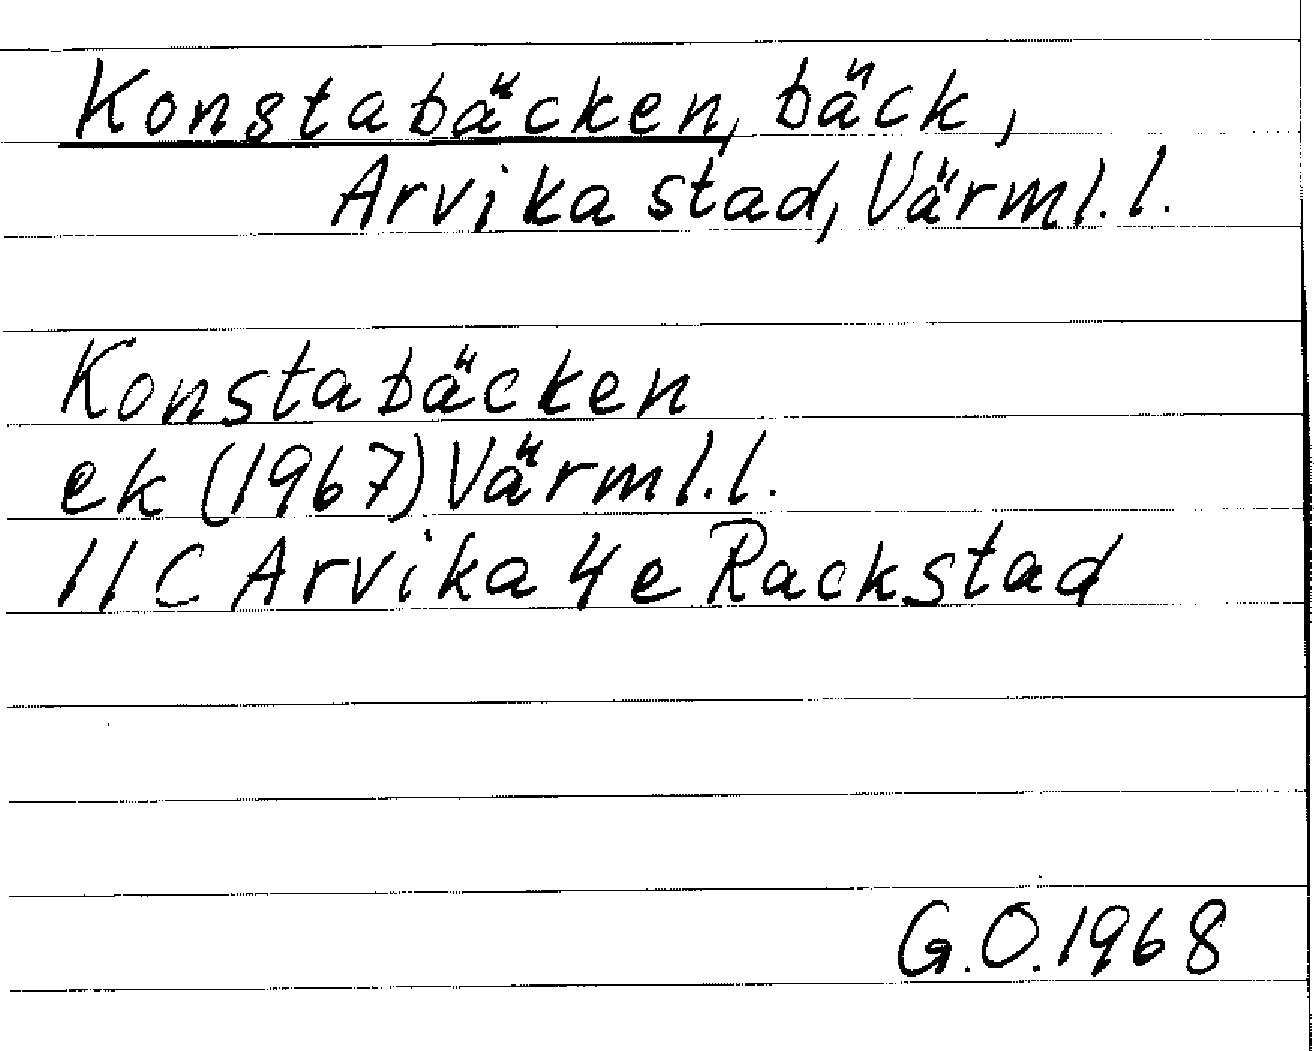 Konstabäcken, bäck,
Arvika stad, Värml.l.
Konstabäcken
ek (1967) Värml.l.
11 C Arvika 4e Rackstad
G.O. 1968